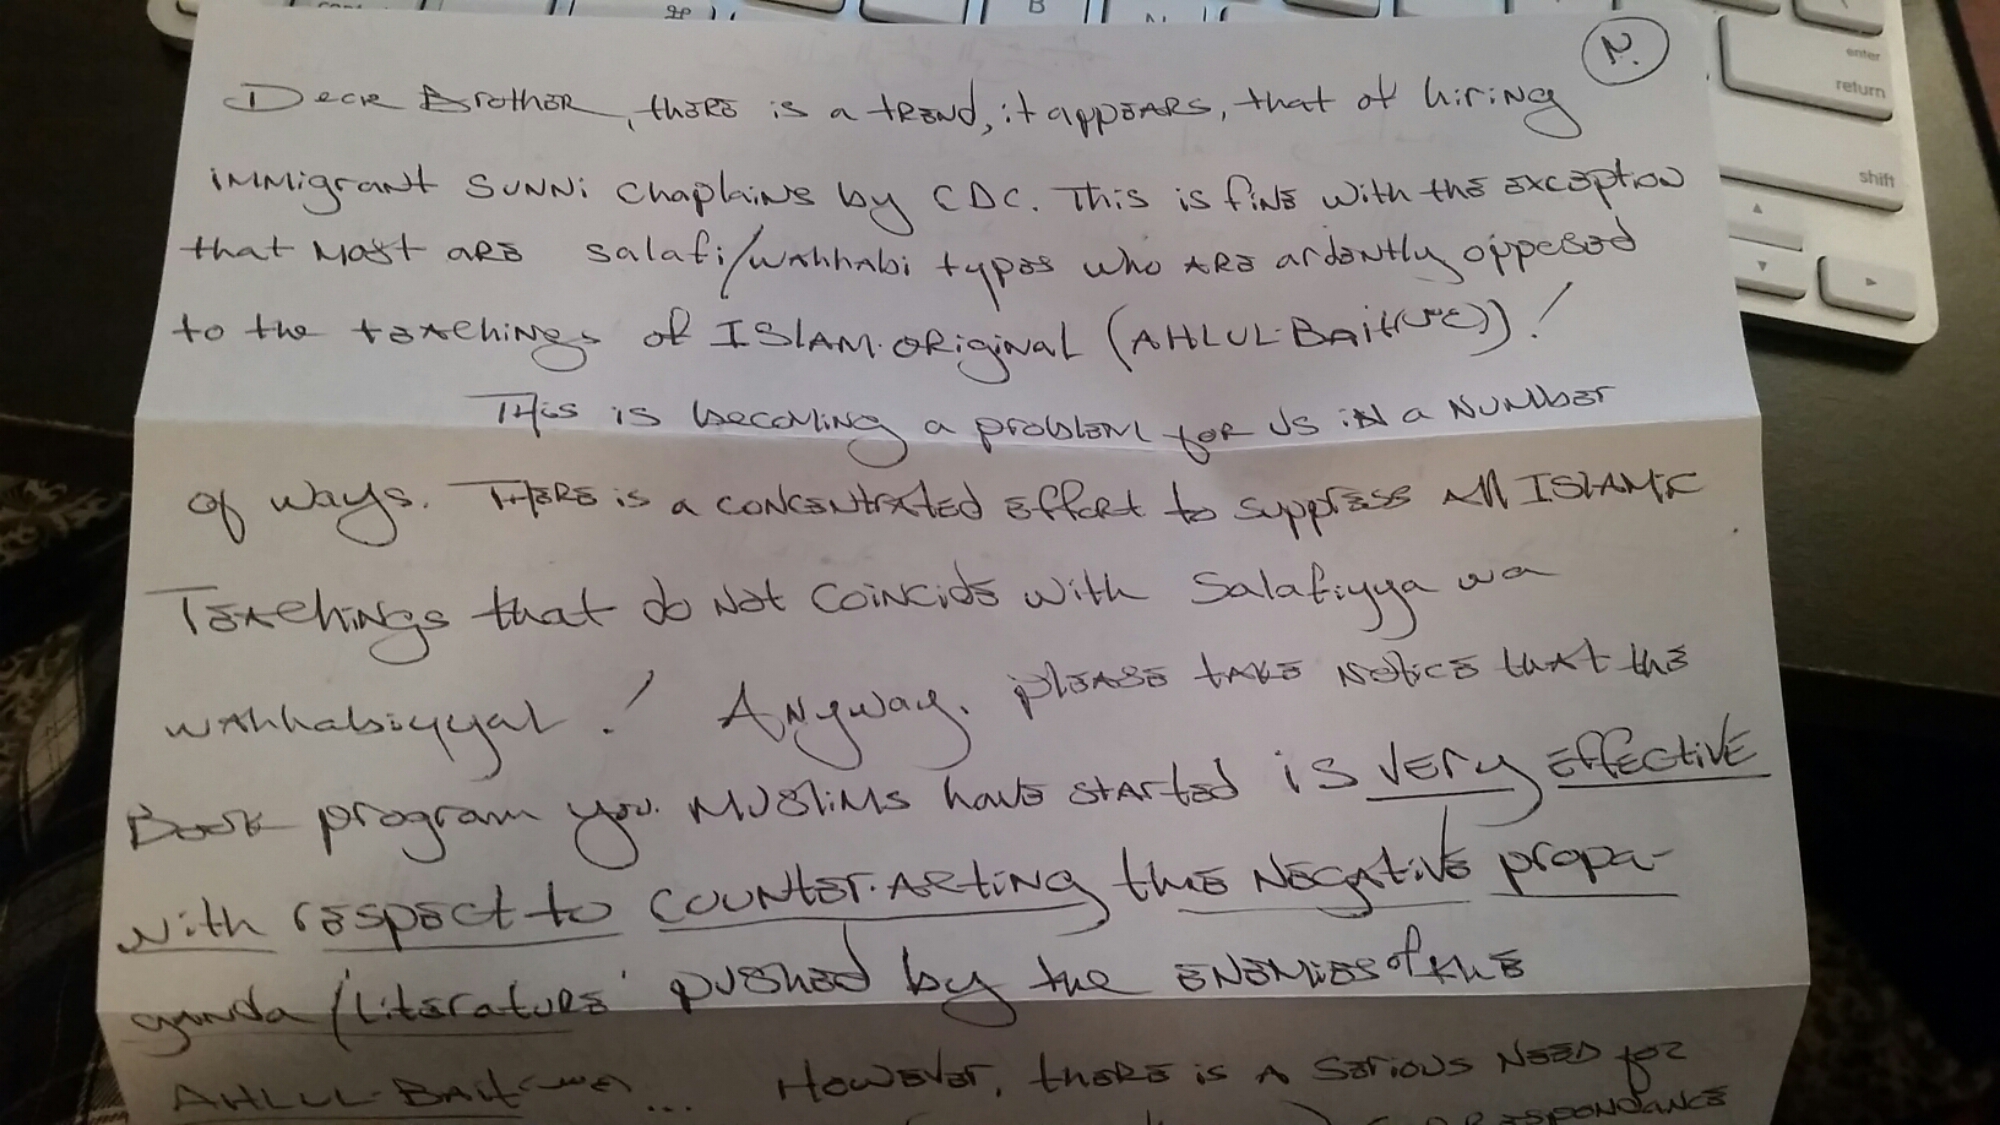 B
N
enter
return
shift
N.
Dear Brother, there is a trend, it appears, that of hiring
immigrant Sunni chaplains by CDC. This is fine with the exception
that most are salafi/wahhabi types who are ardently opposed
to the teachings of ISLAM.original (AHLUL-Bait(عع))!
This is becoming a problem for us in a number
of ways. There is a concentrated effort to suppress all ISLAMIC
Teachings that do not coincide with Salafiyya wa
wahhabiyyah! Anyway. please take notice that the
Book program you. Muslims have started is very effective
with respect to counter.acting the negative propa-
ganda /'literature' pushed by the enemies of the
AHLUL-Bait ... However, there is a serious need for
correspondance